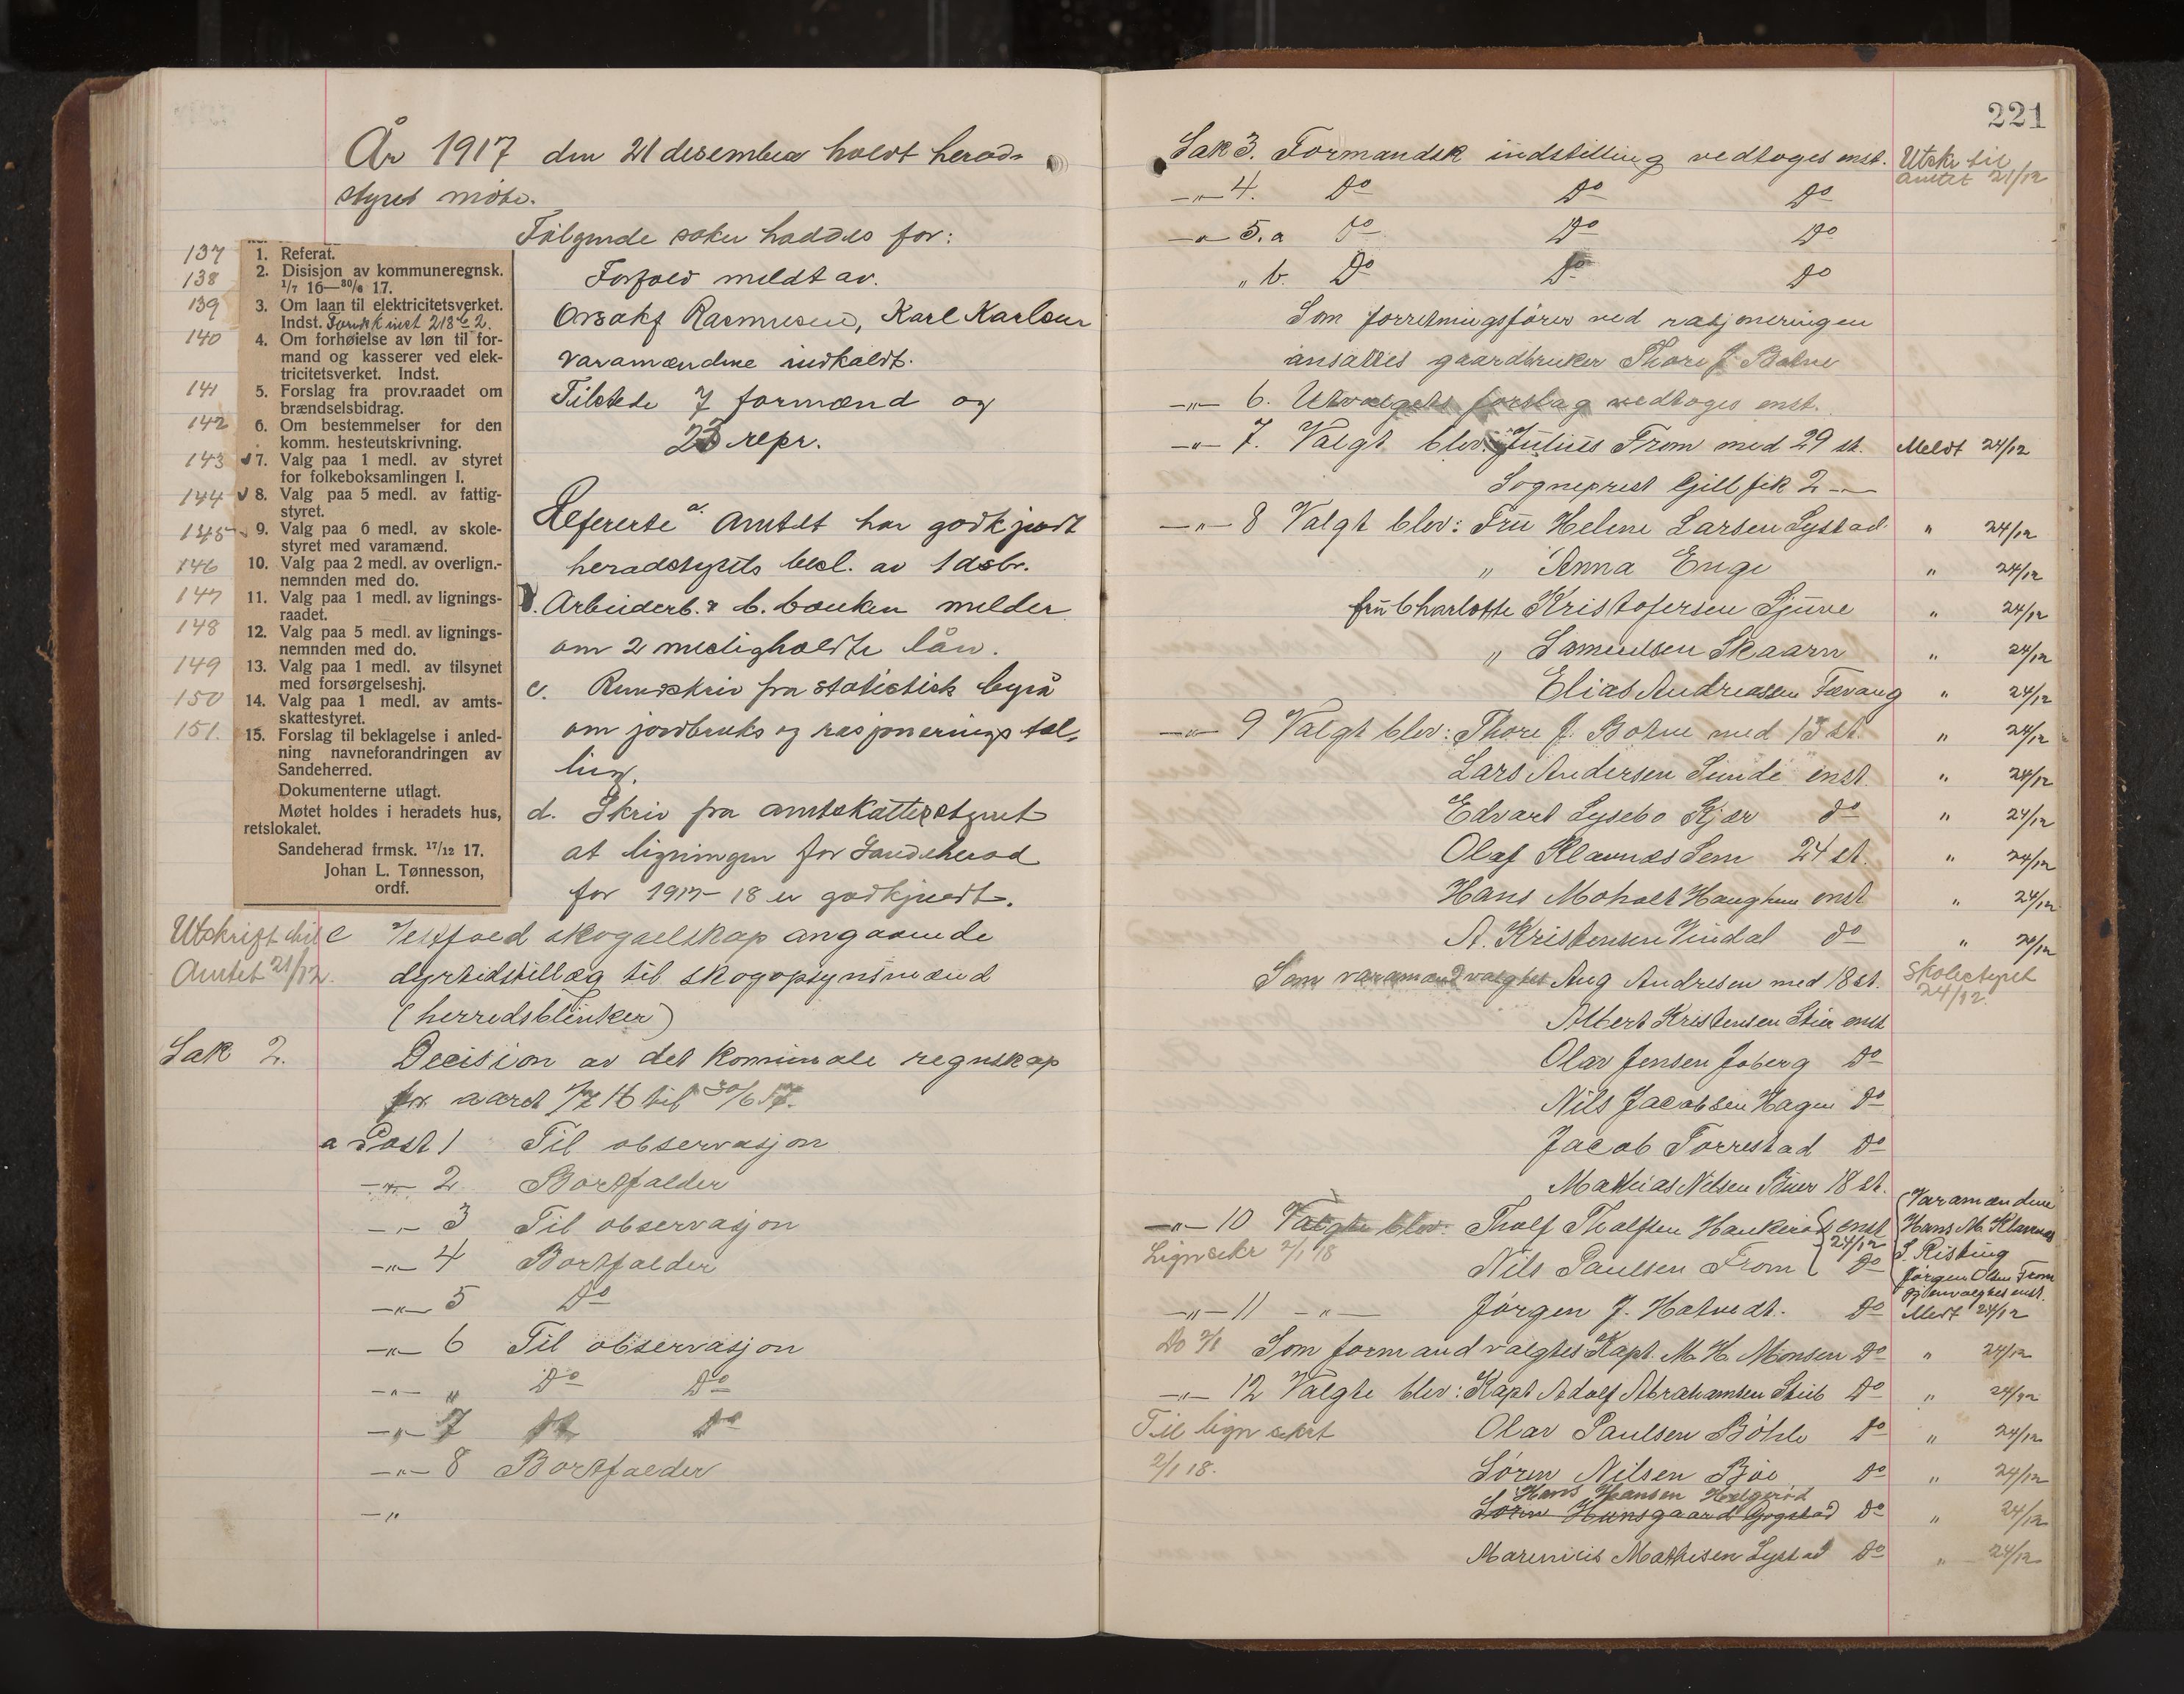 År 1917 den 21 desember holdt herad-
styret møte.
Følgende saker haddes for:
Forfald meldt av.
Karl Karlsen
varamændene indkaldt.
Tilstede 7 formænd og
23 repr.
137
138
139
140
141
142
143
144
145
146
147
148
149
150
151.
1. Referat.
2. Disisjon av kommuneregnsk.
1/7 16—30/6 17.
3. Om laan til elektricitetsverket.
Indst. 218
4. Om forhøielse av løn til for-
mand og kasserer ved elek-
tricitetsverket. Indst.
5. Forslag fra prov.raadet om
brændselsbidrag.
6. Om bestemmelser for den
komm. hesteutskrivning.
7. Valg paa 1 medl. av styret
for folkeboksamlingen I.
8. Valg paa 5 medl. av fattig-
styret.
9. Valg paa 6 medl. av skole-
styret med varamænd.
10. Valg paa 2 medl. av overlign.-
nemnden med do.
11. Valg paa 1 medl. av lignings-
raadet.
12. Valg paa 5 medl. av lignings-
nemnden med do.
13. Valg paa 1 medl. av tilsynet
med forsørgelseshj.
14. Valg paa 1 medl. av amts-
skattestyret.
15. Forslag til beklagelse i anled-
ning navneforandringen av
Sandeherred.
Dokumenterne utlagt.
Møtet holdes i heradets hus,
retslokalet.
Sandeherad frmsk. 17/12 17.
Johan L. Tønnesson,
ordf.
Refererte a. Amtet har godkjendt
heradstyrets besl. av 1 dsbr.
b. Arbeiderb. & b. banken melder
om 2 misligholdte lån.
c. Rundskriv fra statistisk byrå
om jordbruks og rasjonerings tæl-
ling.
d. Skriv fra amtskattestyret
at ligningen for Sandeherad
for 1917-18 er godkjendt.
Utskrift til
Amtet 21/12.
e Vestfold skogselskap angaaende
dyrtidstillæg til skogopsynsmænd
(herredsblinker)
Sak 2. Decision av det kommunale regnskap
for aaret 1/7 16 til 30/6 17.
a Post 1 Til observasjon
-"- 2 Bortfalder
-"- 3 Til observasjon
-"- 4 Bortfalder
-"- 5 Do
-"- 6 Til observasjon
-"- " Do Do
-"- 7 Do Do
-"- 8 Bortfalder
-"
221
Sak 3. Formandsk indstilling vedtoges enst. Utskr til
amtet 21/12
-"- 4. Do Do Do
-"- 5. a Do Do Do
" b. Do Do Do
Som forretningsfører ved rasjoneringen
ansattes gaardbruker Thore J. Botne
-"- 6. Utvalgets forslag vedtoges enst.
-"- 7. Valgt blev: Julius From med 29 st. Meldt 24/12
Sogneprest Gill fik 2 -"-
-"- 8 Valgt blev: Fru Helene Larsen Lystad " 24/12
" Anna Enge " 24/12
fru Charlotte Kristofersen Gjuve " 24/12
" Samuelsen Skaarn " 24/12
Elias Andreassen Fevang " 24/12
-"- 9 Valgt blev: Thore J. Botne med 13 st. " 24/12
Lars Andersen Sunde enst. " 24/12
Edvart Lysebo Kjær do " 24/12
Olaf Klavnes Sem 24 st. " 24/12
Hans Moholt Haughem enst " 24/12
A. Kristensen Vindal do " 24/12
Som varamænd valgtes Aug Andresen med 18 st. Skolestyret
24/12.
Albert Kristensen enst
Olav Jensen Do
Nils Jacobsen Hagen Do
Jacob Torrestad Do
Mathias Nilsen 18 st.
-"- 10 Valgte blev: Tholf Tholfsen Haukerød enst
24/12
Lignsekr 2/1 18
Nils Paulsen From Do
(Varamændene
Hans M. Klavnes
S. Risting
Jørgen Olsen From
gjenvalgtes enst.
-"- 11 -"- Jørgen J. Hotvedt. Do Meldt 24/12
Do 2/1 Som formand valgtes Kapt. M. H. Monsen Do " 24/12
-"- 12 Valgte blev: Kapt Adolf Abrahamsen Stub Do " 24/12
Til lign sekrt Olav Paulsen Bøhle Do " 24/12
2/1 18. Søren Nilsen Bøe Do " 24/12
Hans Hansen Helgerød
Søren Gogstad Do " 24/12
Marenius Mathisen Lystad Do " 24/12